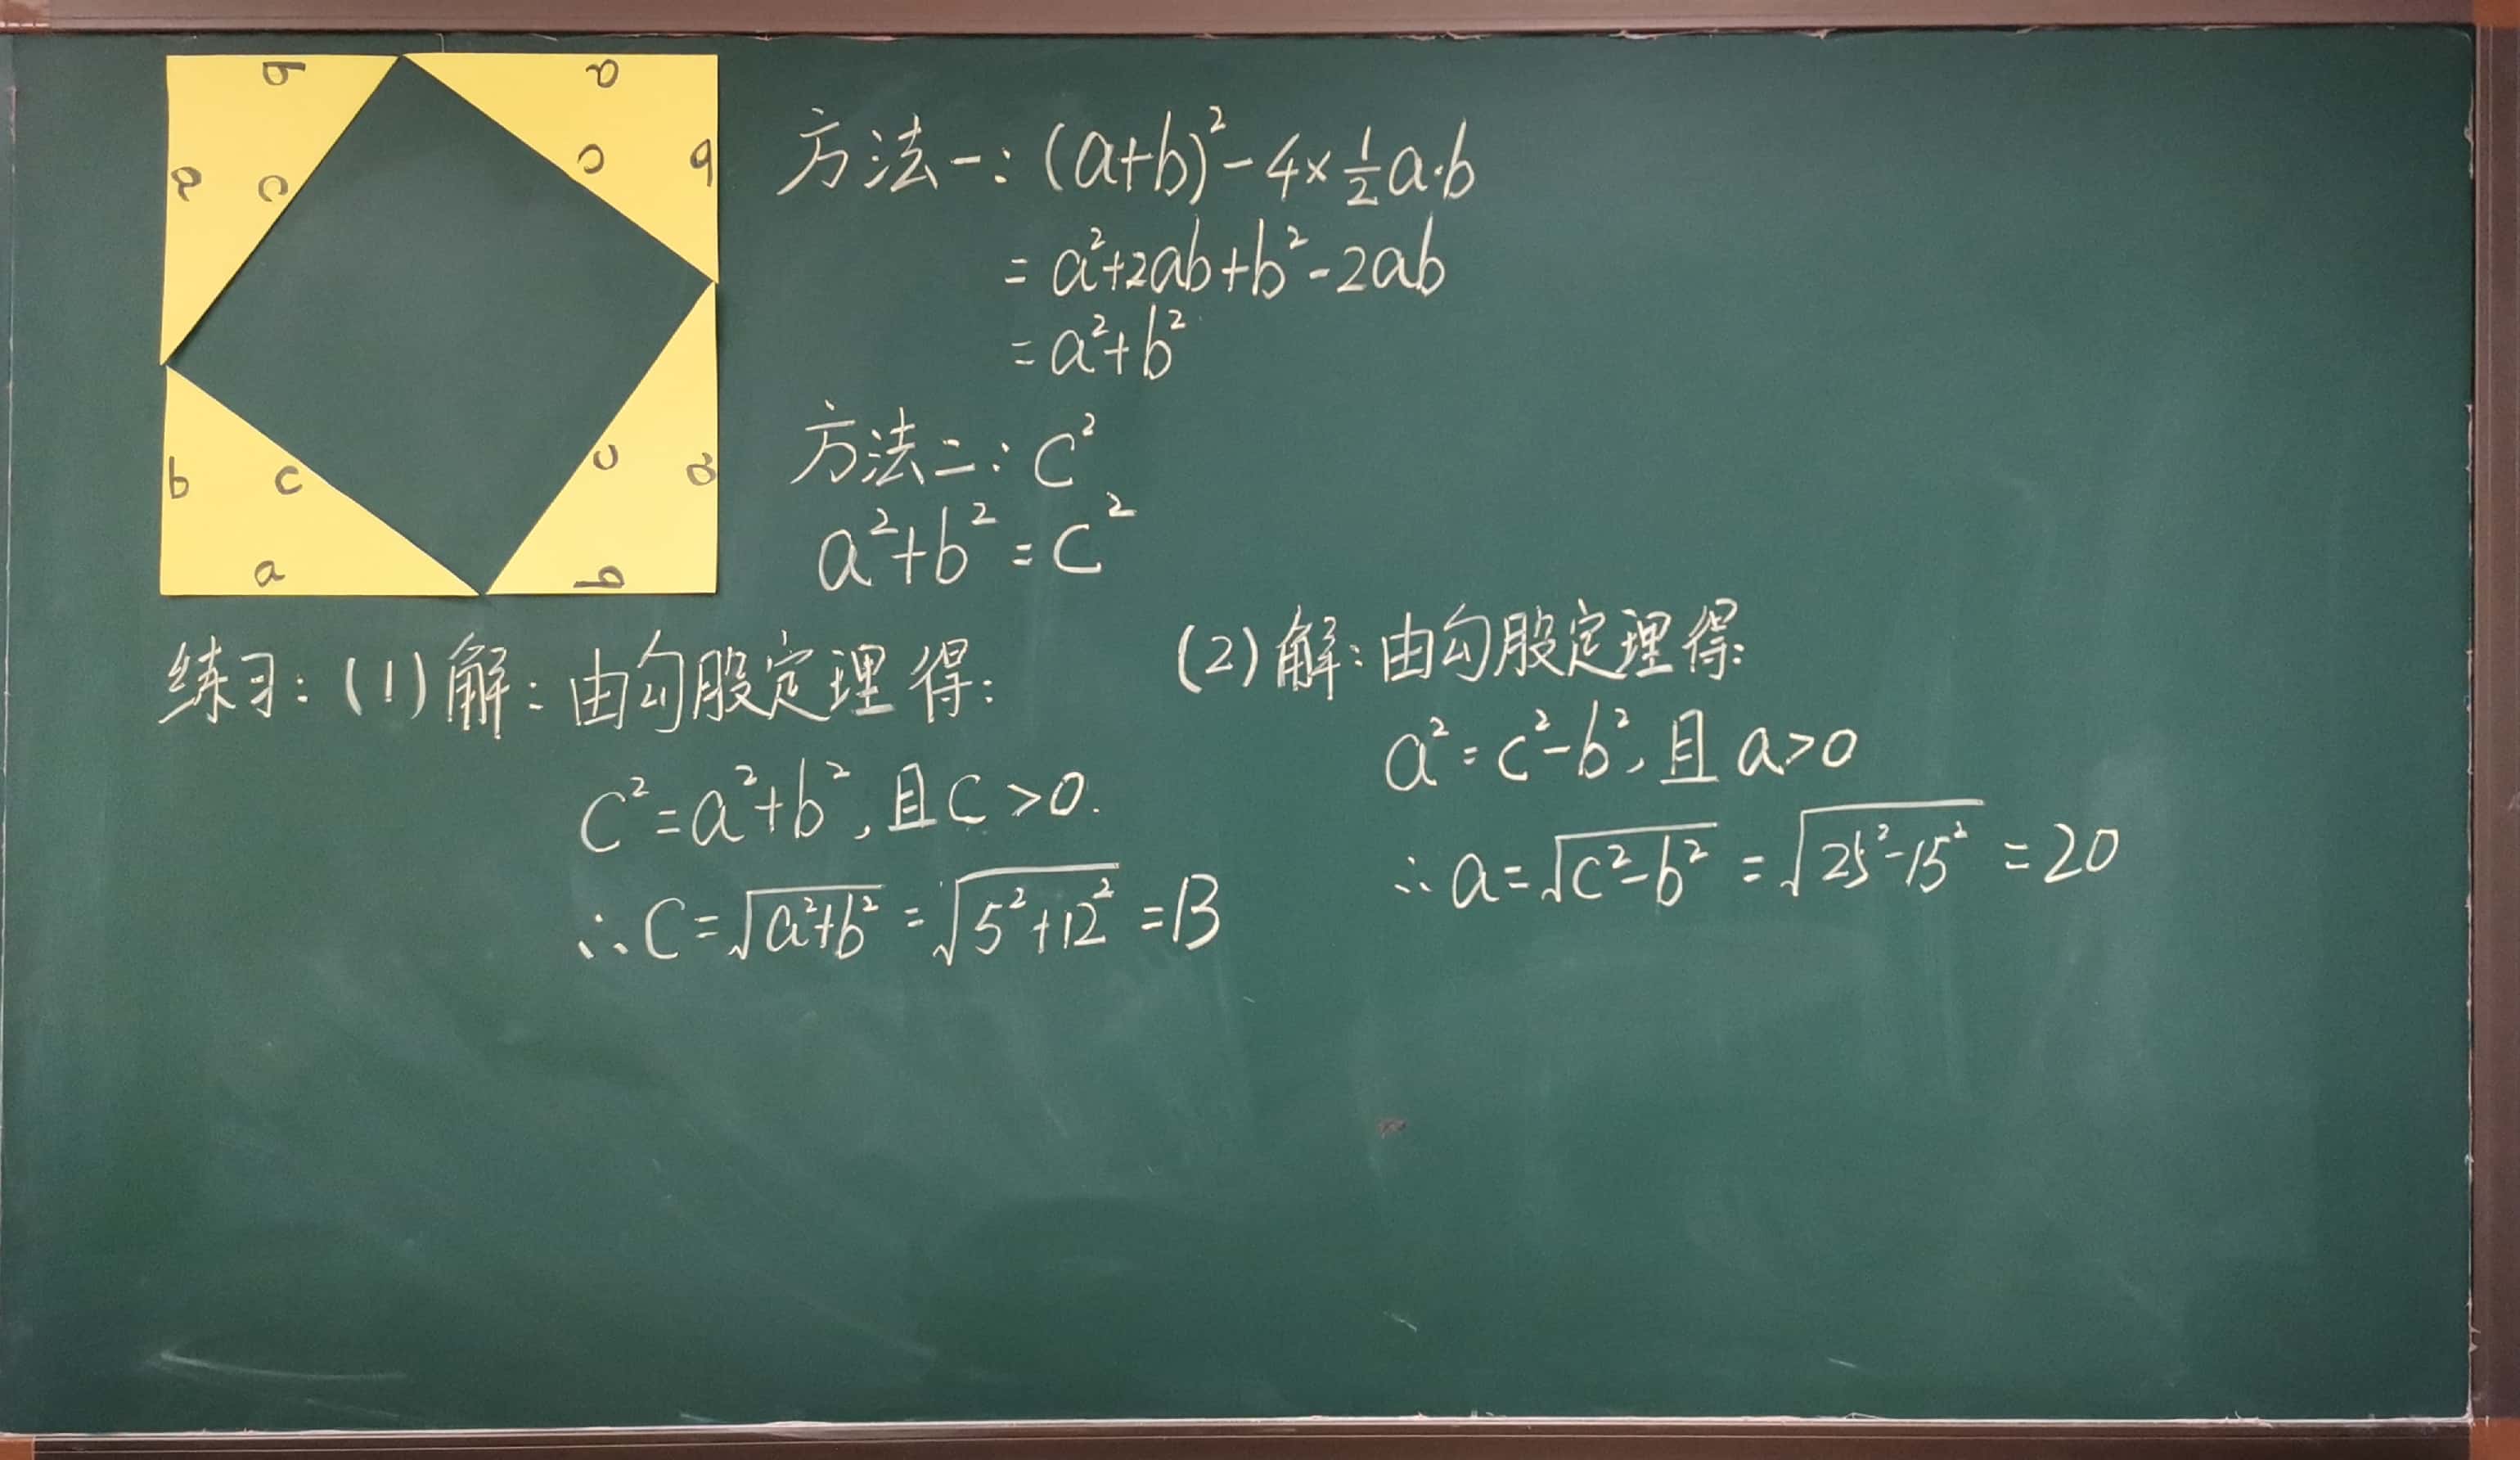 b
a
a
c
c
b
b
c
c
a
a
b
方法一:(a+b)²-4×½a·b
=a²+2ab+b²-2ab
=a²+b²
方法二:C²
a²+b²=C²
练习:(1)解:由勾股定理得:
C²=a²+b²,且C>0.
∴C=√(a²+b²)=√(5²+12²)=13
(2)解:由勾股定理得:
a²=c²-b²,且a>0
∴a=√(c²-b²)=√(25²-15²)=20